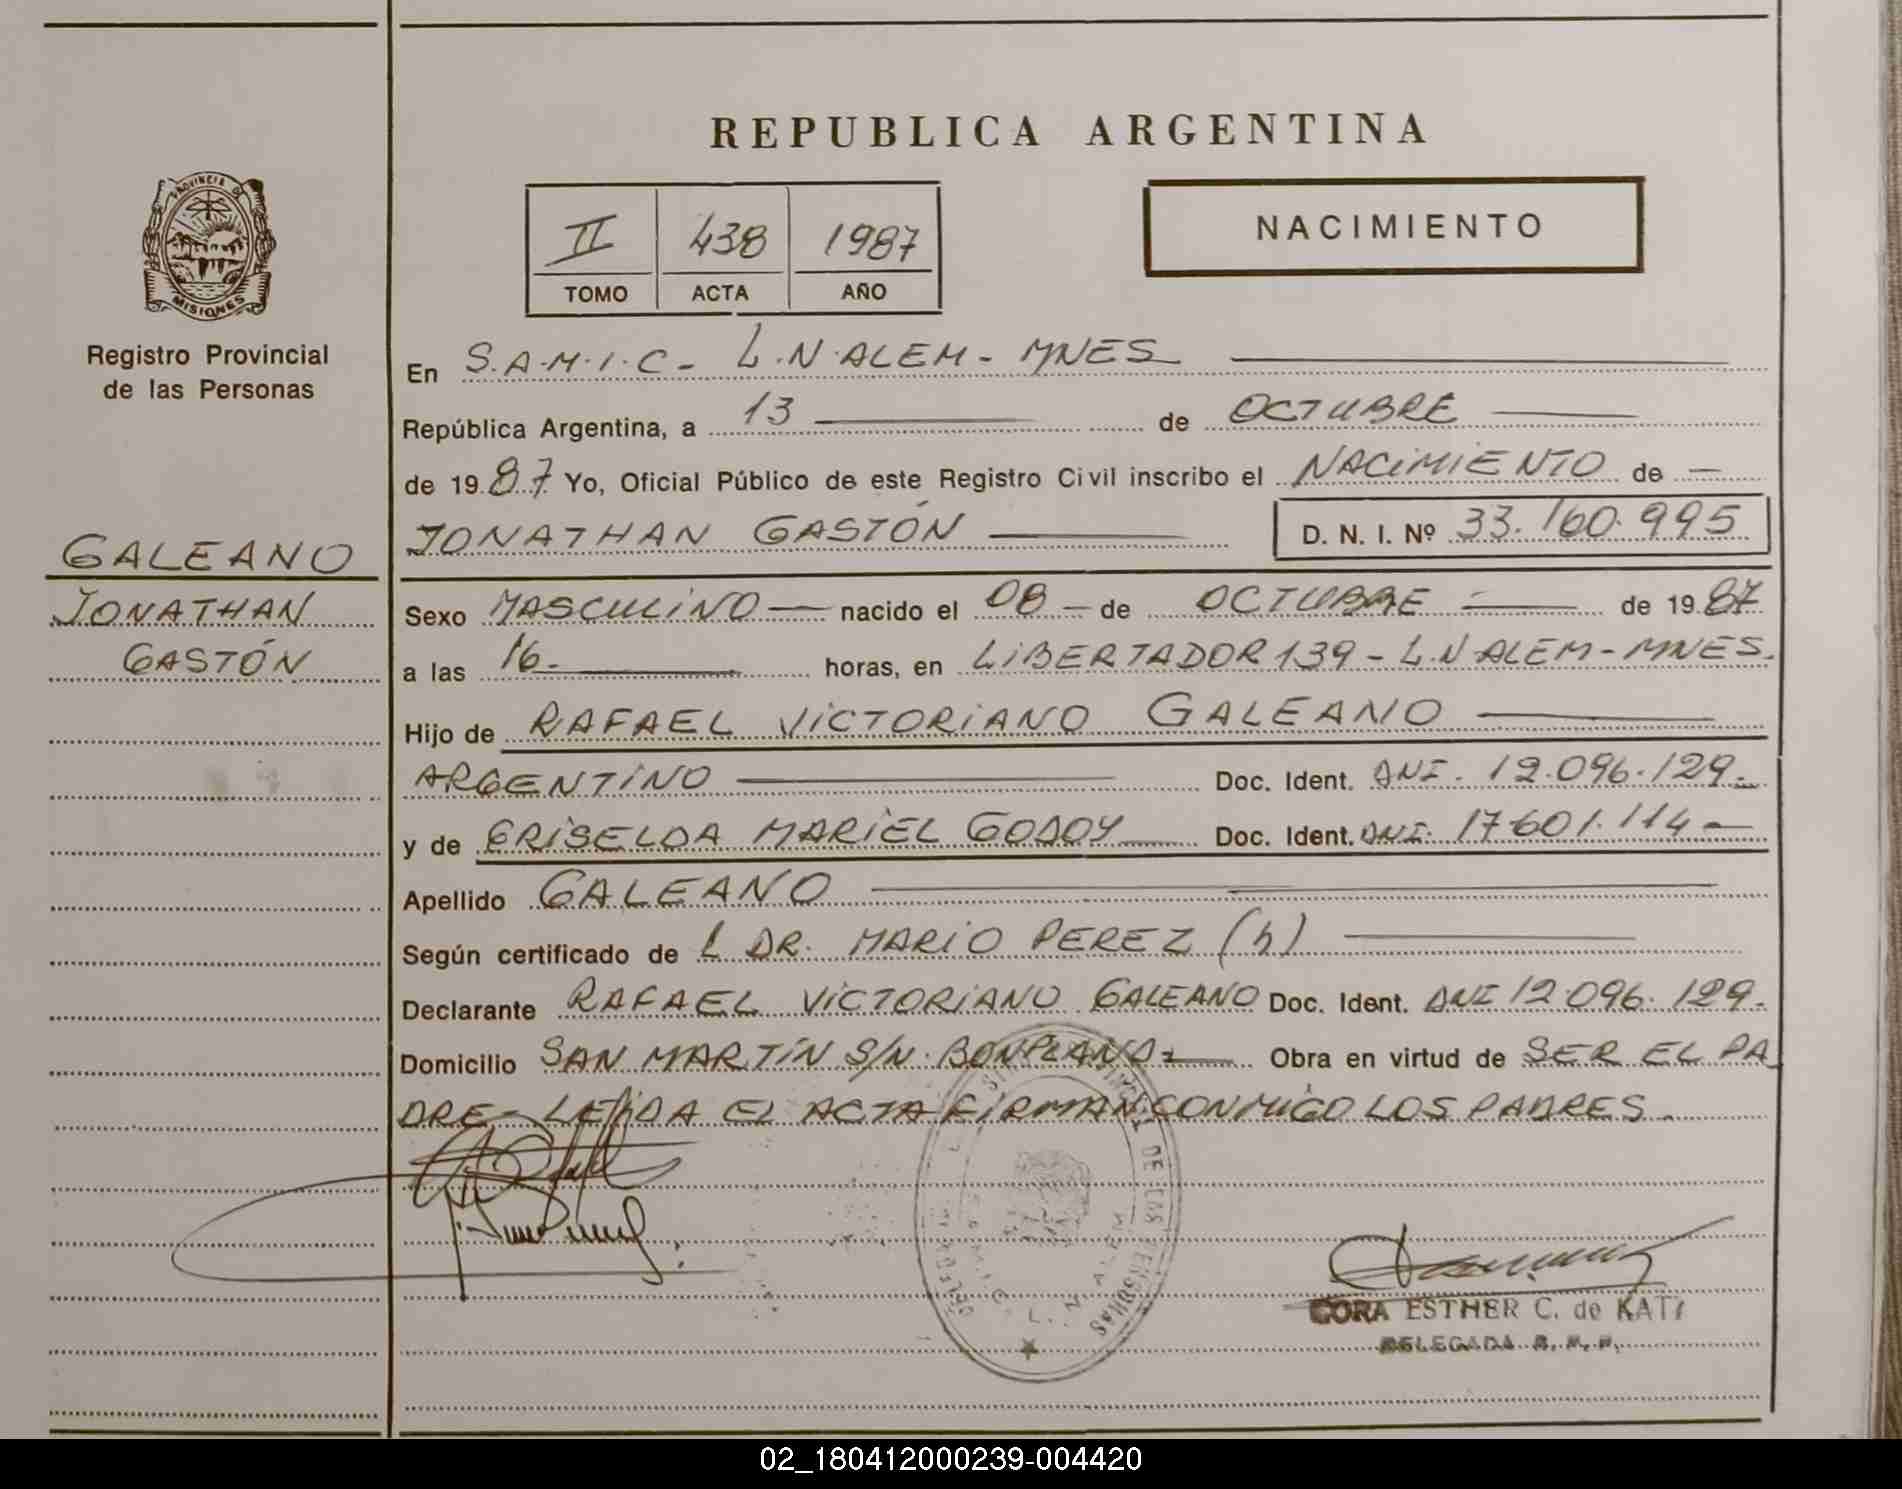 REPUBLICA ARGENTINA
PROVINCIA DE
MISIONES
Registro Provincial
de las Personas
II 438 1987
TOMO ACTA AÑO
NACIMIENTO
En S.A.M.I.C - L.N.ALEM - MNES
República Argentina, a 13 de OCTUBRE
de 1987 Yo, Oficial Público de este Registro Civil inscribo el NACIMIENTO de
JONATHAN GASTÓN D. N. I. Nº 33.160.995
GALEANO
JONATHAN
GASTÓN
Sexo MASCULINO nacido el 08 de OCTUBRE de 1987
a las 16. horas, en LIBERTADOR 139 - L.N.ALEM - MNES.
Hijo de RAFAEL VICTORIANO GALEANO
ARGENTINO Doc. Ident. DNI. 12.096.129.
y de GRISELDA MARIEL GODOY Doc. Ident. DNI. 17.601.114
Apellido GALEANO
Según certificado de L DR. MARIO PEREZ (h)
Declarante RAFAEL VICTORIANO GALEANO Doc. Ident. DNI 12.096.129.
Domicilio SAN MARTÍN S/N. BONPLAND Obra en virtud de SER EL PA
DRE - LEIDA EL ACTA FIRMAN CONMIGO LOS PADRES.
DE LAS PERSONAS
S.A.M.I.C. L. N. ALEM
CORA ESTHER C. de
DELEGADA R. P. P.
02_180412000239-004420